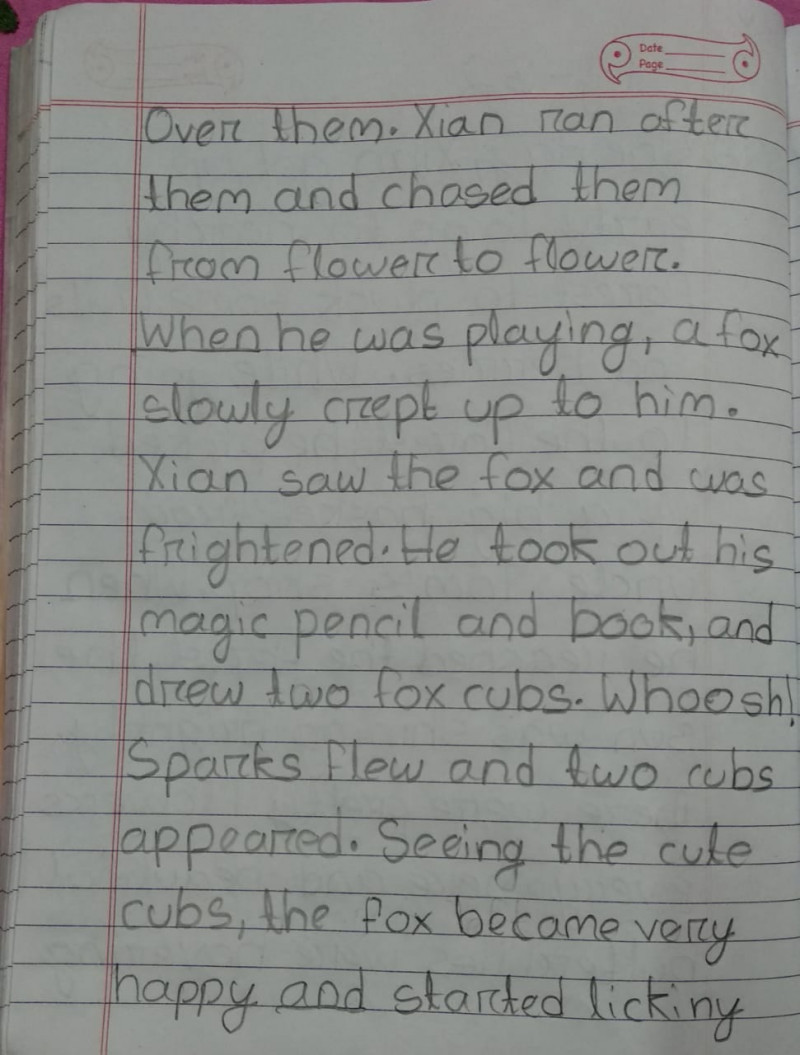 Date
Page
Over them. Xian ran after
them and chased them
from flower to flower.
When he was playing, a fox
slowly crept up to him.
Xian saw the fox and was
frightened. He took out his
magic pencil and book, and
drew two fox cubs. Whoosh!
Sparks flew and two cubs
appeared. Seeing the cute
cubs, the fox became very
happy and started licking